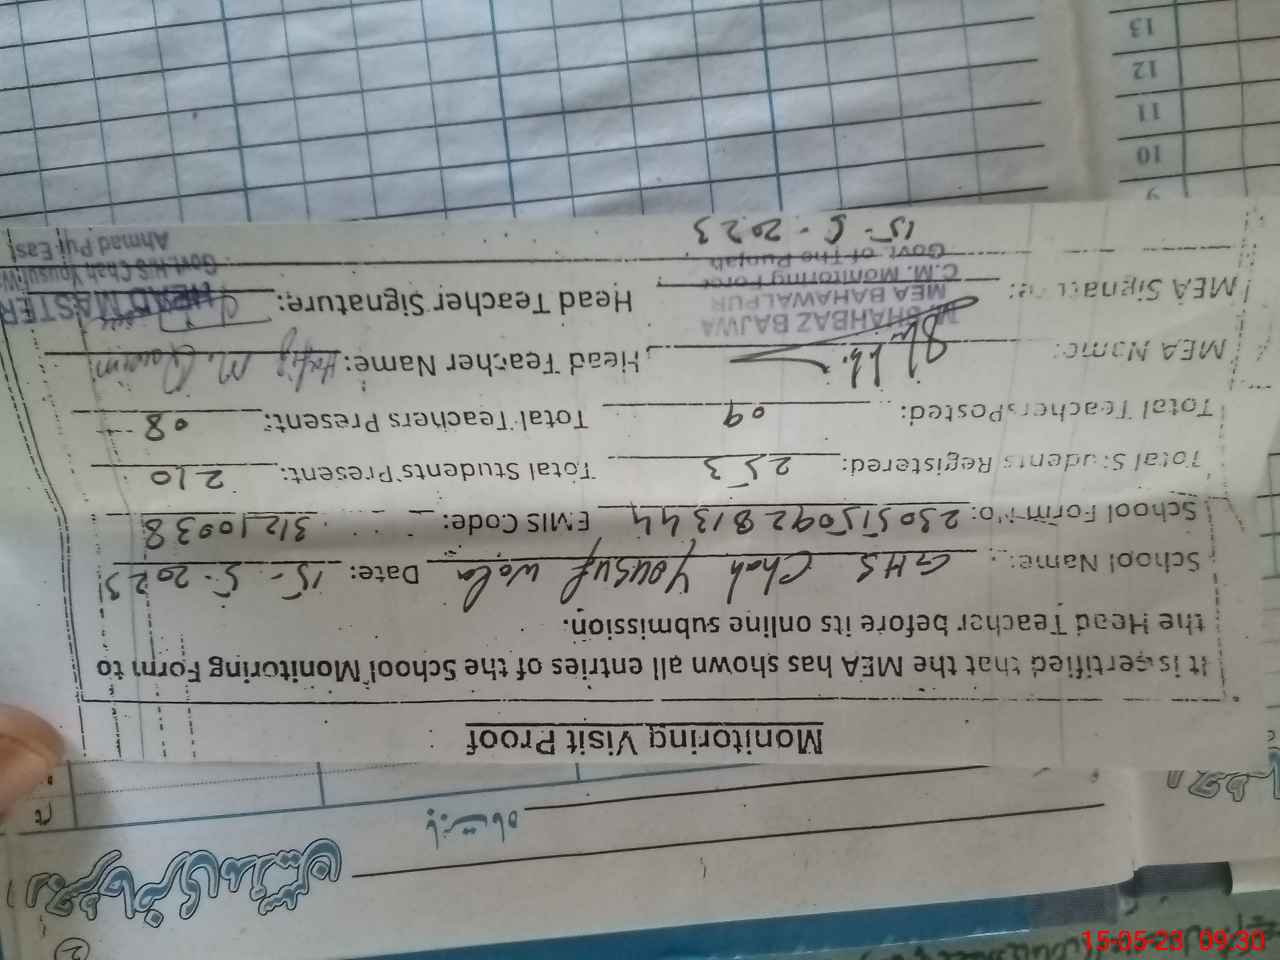 Monitoring Visit Proof
It is certified that the MEA has shown all entries of the School Monitoring Form to
the Head Teacher before its online submission.
School Name: GHS Chah Yousuf Wala Date: 15-5-2023
School Form No: 2305150928 1344 EMIS Code: 31210938
Total Students Registered: 253 Total Students Present: 210
Total Teachers Posted: 09 Total Teachers Present: 08
MEA Name: Head Teacher Name: Hafiz M. Qasim
MEA Signature: Head Teacher Signature:
M. SHAHBAZ BAJWA
MEA BAHAWALPUR
C.M. Monitoring Force
Govt. of The Punjab
15-5-2023
HEAD MASTER
Govt. H/S Chah Yousuf Wa
Ahmad Pur East
رجسٹر حاضری مدرسین
بابت ماہ
2
9
10
11
12
13
15-05-23 09:30